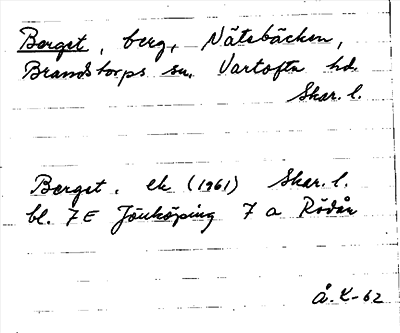 Berget, berg, Nätebäcken,
Brandstorps sn. Vartofta hd.
Skar. l.
Berget. ek (1961) Skar. l.
bl. 7E Jönköping 7 a Rödån
Å. K-62